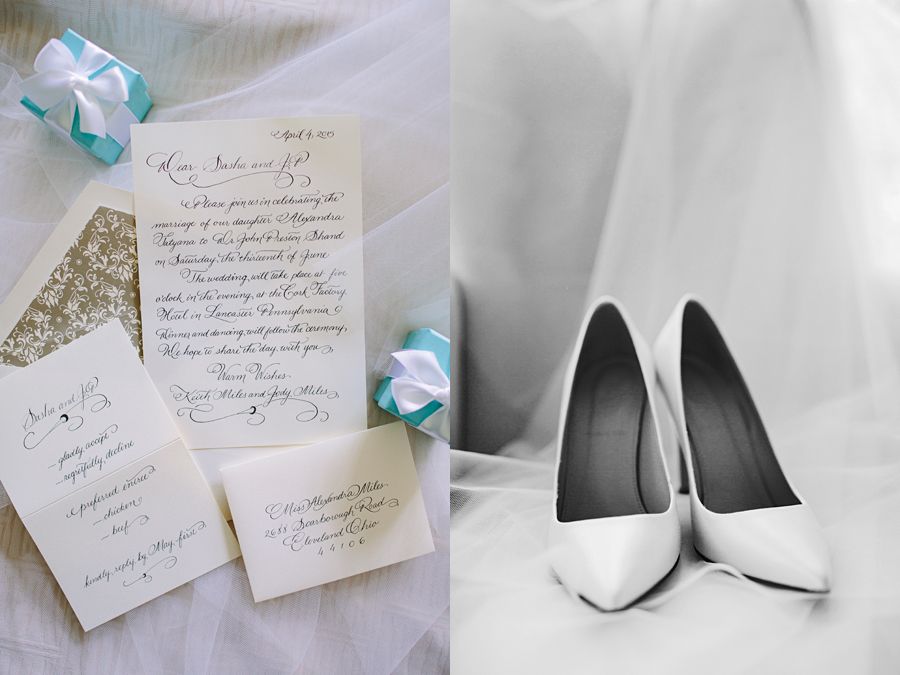 April 4, 2015
Dear Sasha and JP
Please join us in celebrating the
marriage of our daughter Alexandra
Tatyana to Dr John Preston Shand
on Saturday, the thirteenth of June
The wedding, will take place at five
o'clock in the evening, at the Cork Factory
Hotel in Lancaster Pennsylvania
Dinner and dancing, will follow the ceremony,
We hope to share the day, with you
Warm Wishes
Keith Miles and Jody Miles
Sasha and JP
– gladly accept
– regretfully, decline
preferred entrée
– chicken
– beef
kindly, reply, by, May, first
Miss Alexandra Miles
2688 Scarborough Road
Cleveland Ohio
44106